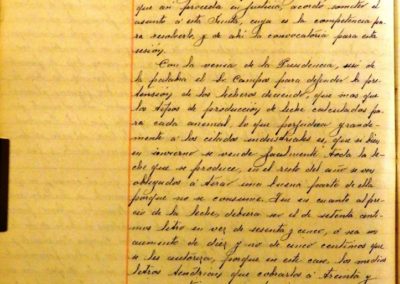 que así procedía en justicia, acordó someter el
asunto á esta Junta, cuya es la competencia pa
ra resolverlo, y de ahí la convocatoria para esta
sesión.
Con la venia de la Presidencia, usó de
la palabra el Sr. Campos para defender la pre
tensión de los lecheros diciendo, que mas que
los tipos de producción de leche calculados pa
ra cada animal, lo que perjudica grande
mente á los citados industriales es, que si bien
en invierno se vende facilmente toda la le
che que se produce, en el resto del año se ven
obligados á tirar una buena parte de ella
porque no se consume. Que en cuanto al pre
cio de la leche, debiera ser el de setenta cénti
mos litro en vez de sesenta y cinco, ó sea un
aumento de diez y no de cinco céntimos que
se les autoriza, porque en este caso los medios
litros tendrían que cobrarlos á treinta y